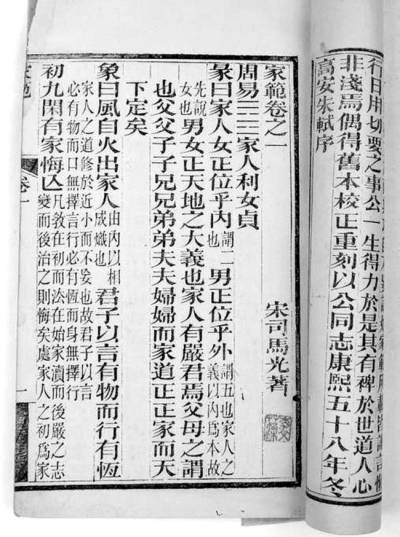 行日用切要之事公一生得力於是其有裨於世道人心
非淺焉偶得舊本校正重刻以公同志康熙五十八年冬
高安朱軾序
家範卷之一
宋司馬光著
周易䷤家人利女貞
彖曰家人女正位乎內也謂二男正位乎外謂五也家人之義以內為本故
先說女也男女正天地之大義也家人有嚴君焉父母之謂
也父父子子兄兄弟弟夫夫婦婦而家道正正家而天
下定矣
象曰風自火出家人由內以相成熾也君子以言有物而行有恆
家人之道修於近小而不妄也故君子以言必有物而口無擇言行必有恆而身無擇行
初九閑有家悔亡凡教在初而法在始家瀆而後嚴之志變而後治之則悔矣處家人之初為家
卷一
一